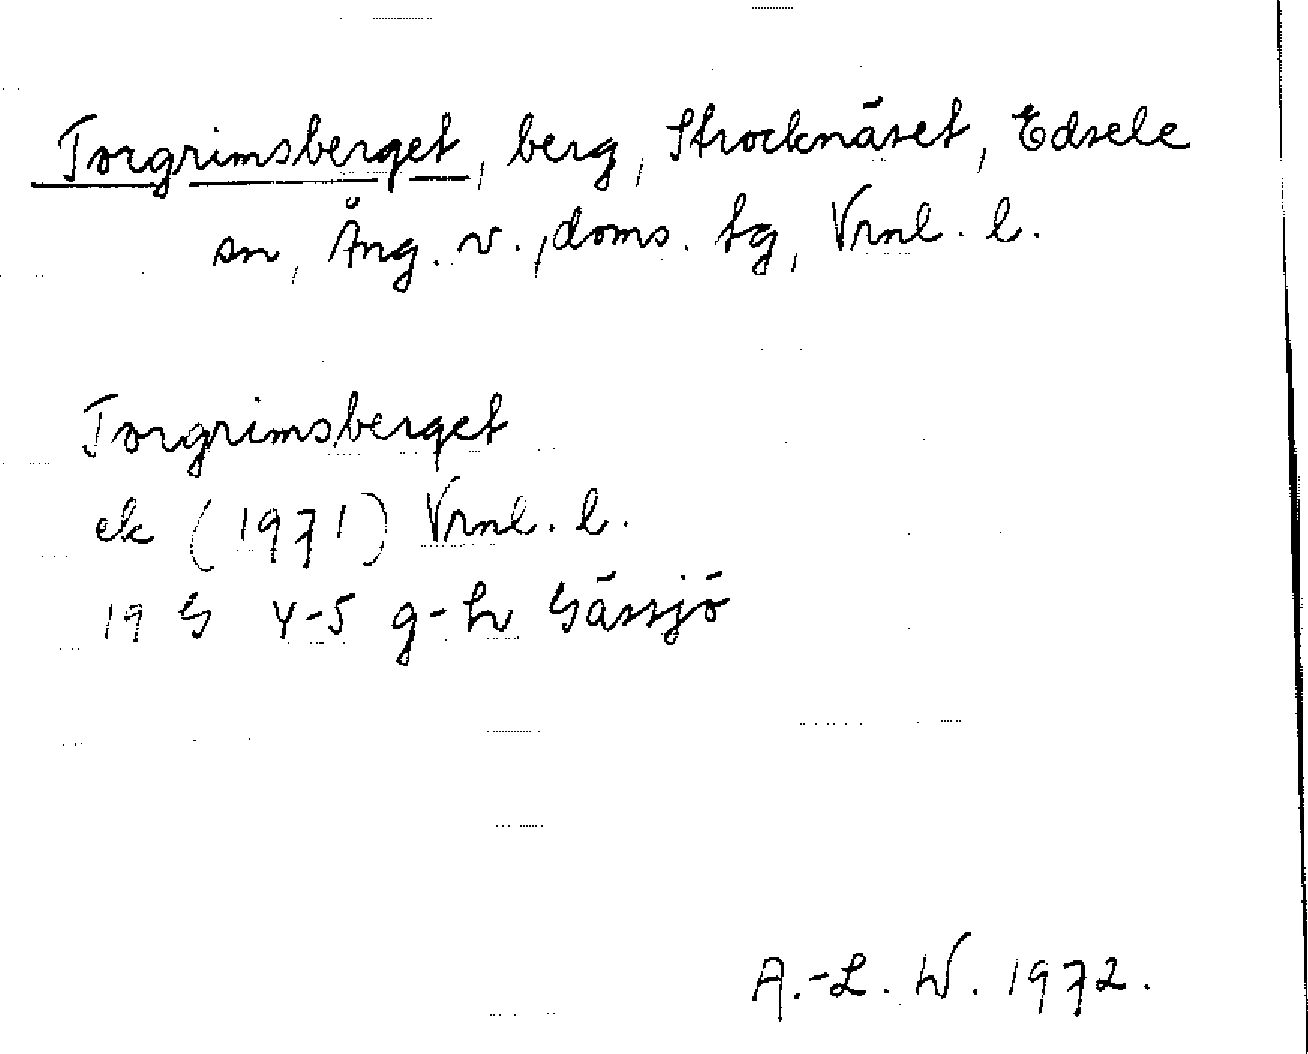 Torgrimsberget, berg, Strocknäset, Edsele
sn, Ång. v., doms. tg, Vrnl. l.
Torgrimsberget
ek (1971) Vrnl. l.
19 G 4-5 g-h Gåssjö
A.-L. W. 1972.